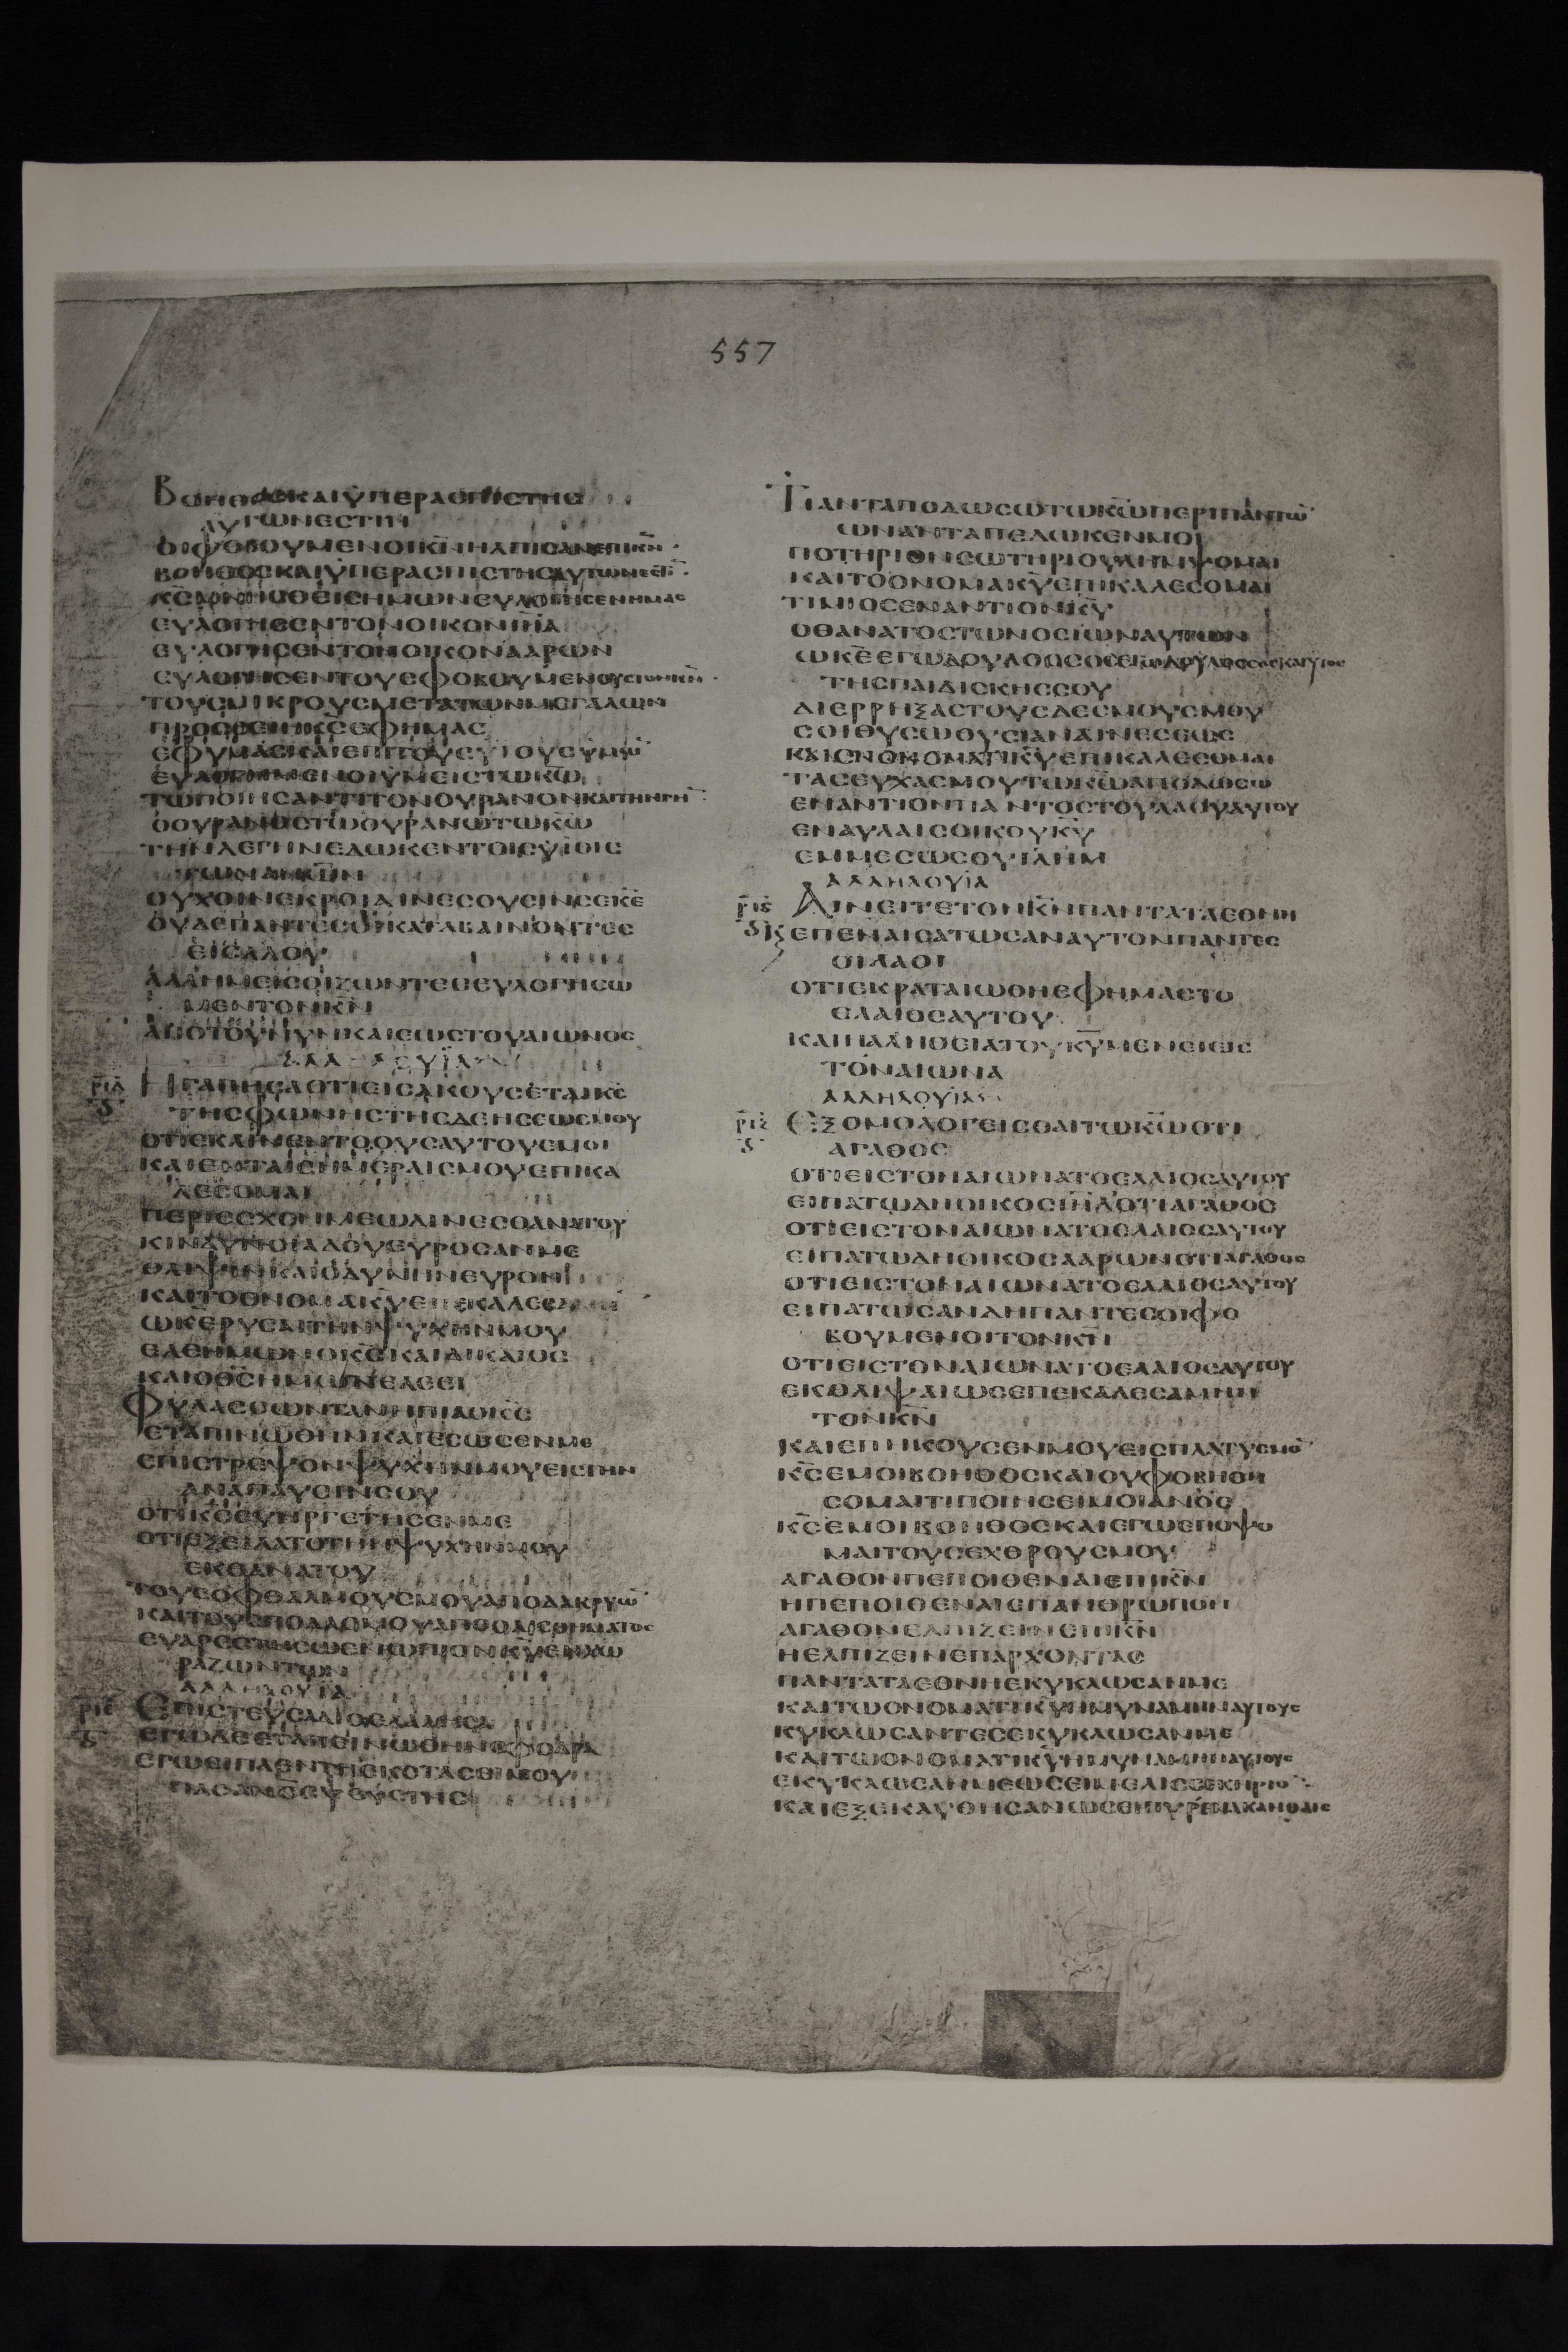 557
Βοηθοσκαιϋπερασπιστησ
αυτωνεστιν
οιφοβουμενοικ̅ν̅ηλπισανεπικ̅ν̅
βοηθοσκαιϋπερασπιστησαυτων
ευλογησεντονοικονι̅η̅λ̅
ευλογησεντονοικονααρων
ευλογησεντουσφοβουμενουστονκ̅ν̅
τουσμικρουσμετατωνμεγαλων
εφυμασκαιεπιτουσϋιουσϋμω̅
ευλογημενοιϋμειστωκ̅ω̅
τωποιησαντιτονουρανονκαιτηνγη̅
οουρανοστουουρανωτωκ̅ω̅
τηνδεγηνεδωκεντοισϋιοισ
τωνα̅ν̅ω̅ν̅
ουχοινεκροιαινεσουσινσεκ̅ε̅
ουδεπαντεσοικαταβαινοντεσ
εισαδου
αλλημεισοιζωντεσευλογησω
μεντονκ̅ν̅
αποτουνυνκαιεωστουαιωνοσ
αλληλουϊα
ρ̅ι̅δ̅ Ηγαπησαοτιεισακουσεταικ̅σ̅
τησφωνηστησδεησεωσμου
οτιεκλινεντοουσαυτουεμοι
καιενταισημεραισμουεπικα
λεσομαι
περιεσχονμεωδινεσθανατου
κινδυνοιαδουευροσανμε
θλιψινκαιοδυνηνευρον
καιτοονομακ̅υ̅επεκαλεσαμην
ωκ̅ε̅ρυσαιτηνψυχηνμου
ελεημωνοκ̅σ̅καιδικαιοσ
καιοθ̅σ̅ημωνελεει
Φυλασσωντανηπιαοκ̅σ̅
εταπινωθηνκαιεσωσενμε
επιστρεψονψυχηνμουειστην
αναπαυσινσου
οτικ̅σ̅ευηργετησενμε
οτιεξειλατοτηνψυχηνμου
εκθανατου
τουσοφθαλμουσμουαποδακρυω̅
καιτουσποδασμουαποολισθηματοσ
ευαρεστησωενωπιονκ̅υ̅ενχω
ραζωντων
αλληλουϊα
ρ̅ι̅ε̅ Επιστευσαδιοελαλησα
εγωδεεταπεινωθηνσφοδρα
εγωειπαεντηεκστασειμου
πασα̅ν̅ο̅σ̅ψευστησ
Τιανταποδωσωτωκ̅ω̅περιπαντω̅
ωνανταπεδωκενμοι
ποτηριονσωτηριουλημψομαι
καιτοονομακ̅υ̅επικαλεσομαι
τιμιοσεναντιονκ̅υ̅
οθανατοστωνοσιωναυτων
ωκ̅ε̅εγωδουλοσσοσεγωδουλοσσοσκαιυιοσ
τησπαιδισκησσου
διερρηξαστουσδεσμουσμου
σοιθυσωθυσιαναινεσεωσ
καιενονοματικ̅υ̅επικαλεσομαι
τασευχασμουτωκ̅ω̅αποδωσω
εναντιονπαντοστουλαουαυτου
εναυλαισοικουκ̅υ̅
εμμεσωσουι̅λ̅η̅μ̅
αλληλουϊα
ρ̅ι̅ϛ̅ Αινειτετονκ̅ν̅πανταταεθνη
επεναισατωσαναυτονπαντεσ
οιλαοι
οτιεκραταιωθηεφημαστο
ελαιοσαυτου
καιηαληθειατουκ̅υ̅μενεισ
τοναιωνα
αλληλουϊα
ρ̅ι̅ζ̅ Εξομολογεισθαιτωκ̅ω̅οτι
αγαθοσ
οτιειστοναιωνατοελαιοσαυτου
ειπατωδηοικοσι̅η̅λ̅οτιαγαθοσ
οτιειστοναιωνατοελαιοσαυτου
ειπατωδηοικοσααρωνοτιαγαθοσ
οτιειστοναιωνατοελαιοσαυτου
ειπατωσανδηπαντεσοιφο
βουμενοιτονκ̅ν̅
οτιειστοναιωνατοελαιοσαυτου
εκθλιψαιωσεπεκαλεσαμην
τονκ̅ν̅
καιεπηκουσενμουεισπλατυσμο̅
κ̅σ̅εμοιβοηθοσκαιουφοβηθη
σομαιτιποιησειμοια̅ν̅ο̅σ̅
κ̅σ̅εμοιβοηθοσκαιεγωεποψο
μαιτουσεχθρουσμου
αγαθονπεποιθεναιεπικ̅ν̅
ηπεποιθεναιεπανθρωπον
αγαθονελπιζεινεπικ̅ν̅
ηελπιζεινεπαρχοντασ
πανταταεθνηεκυκλωσανμε
καιτωονοματικ̅υ̅ημυναμηναυτουσ
κυκλωσαντεσεκυκλωσανμε
καιτωονοματικ̅υ̅ημυναμηναυτουσ
εκυκλωσανμεωσειμελισσεκηριο̅
καιεξεκαυθησανωσενπυρενακανθαισ